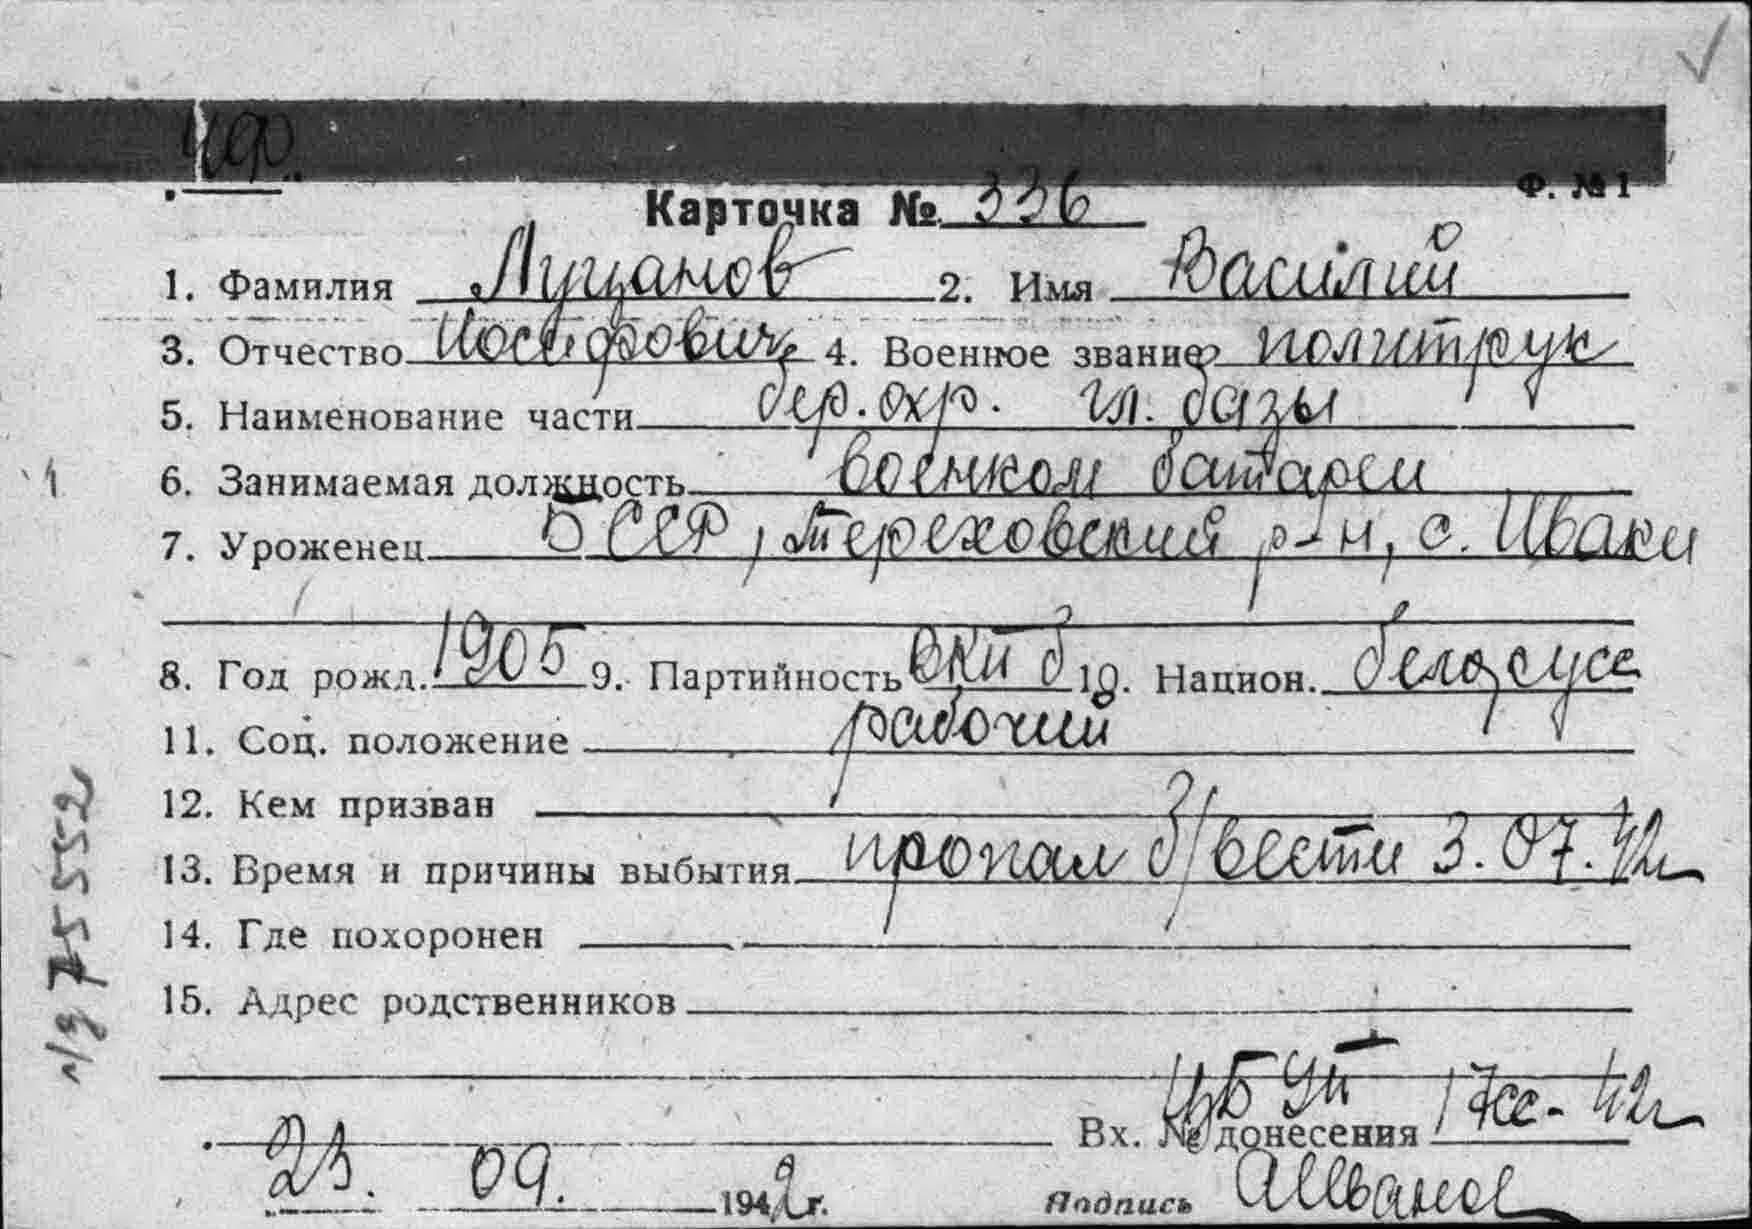 ЧФ.
Ф. №1
Карточка № 336
1. Фамилия Луцанов 2. Имя Василий
3. Отчество Иосифович 4. Военное звание политрук
5. Наименование части бер. охр. гл. базы
6. Занимаемая должность военком батареи
7. Уроженец БССР, Тереховский р-н, с. Иваки
8. Год рожд. 1905 9. Партийность ВКПб 10. Национ. белорусс
11. Соц. положение рабочий
12. Кем призван
13. Время и причины выбытия пропал б/вести 3.07.42г
14. Где похоронен
15. Адрес родственников
Вх. № донесения 17сс-42г
23. 09. 1942г.
Подпись
75552